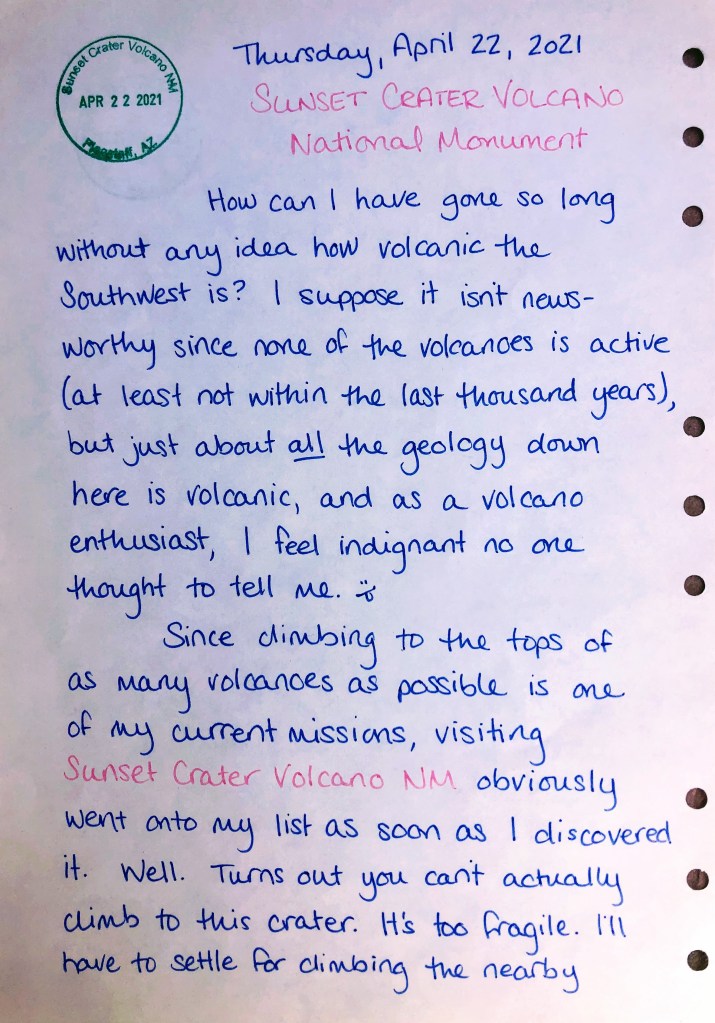 Sunset Crater Volcano NM
APR 22 2021
Flagstaff, AZ
Thursday, April 22, 2021
SUNSET CRATER VOLCANO
National Monument
How can I have gone so long
without any idea how volcanic the
Southwest is? I suppose it isn't news-
worthy since none of the volcanoes is active
(at least not within the last thousand years),
but just about all the geology down
here is volcanic, and as a volcano
enthusiast, I feel indignant no one
thought to tell me.
Since climbing to the tops of
as many volcanoes as possible is one
of my current missions, visiting
Sunset Crater Volcano NM obviously
went onto my list as soon as I discovered
it. Well. Turns out you can't actually
climb to this crater. It's too fragile. I'll
have to settle for climbing the nearby